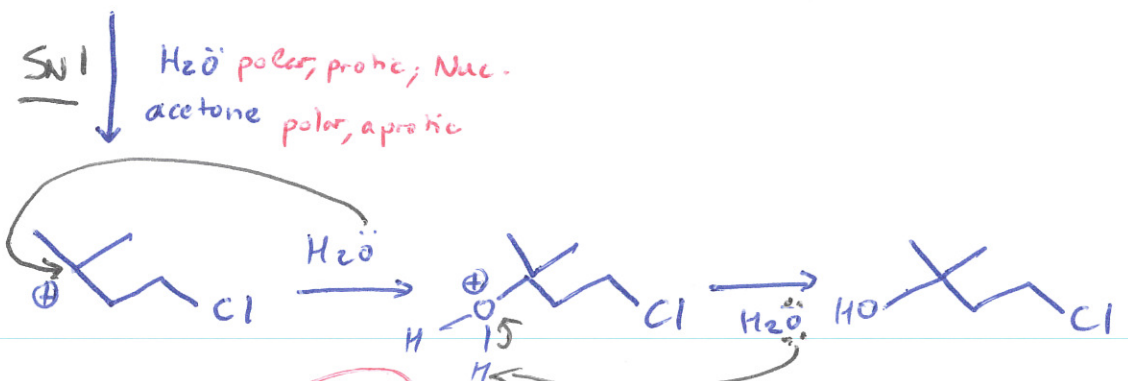 SN1
H2Ö polar, protic; Nuc.
acetone polar, aprotic
H2Ö
⊕ Cl
⊕ O H H Cl
H2Ö
HO Cl